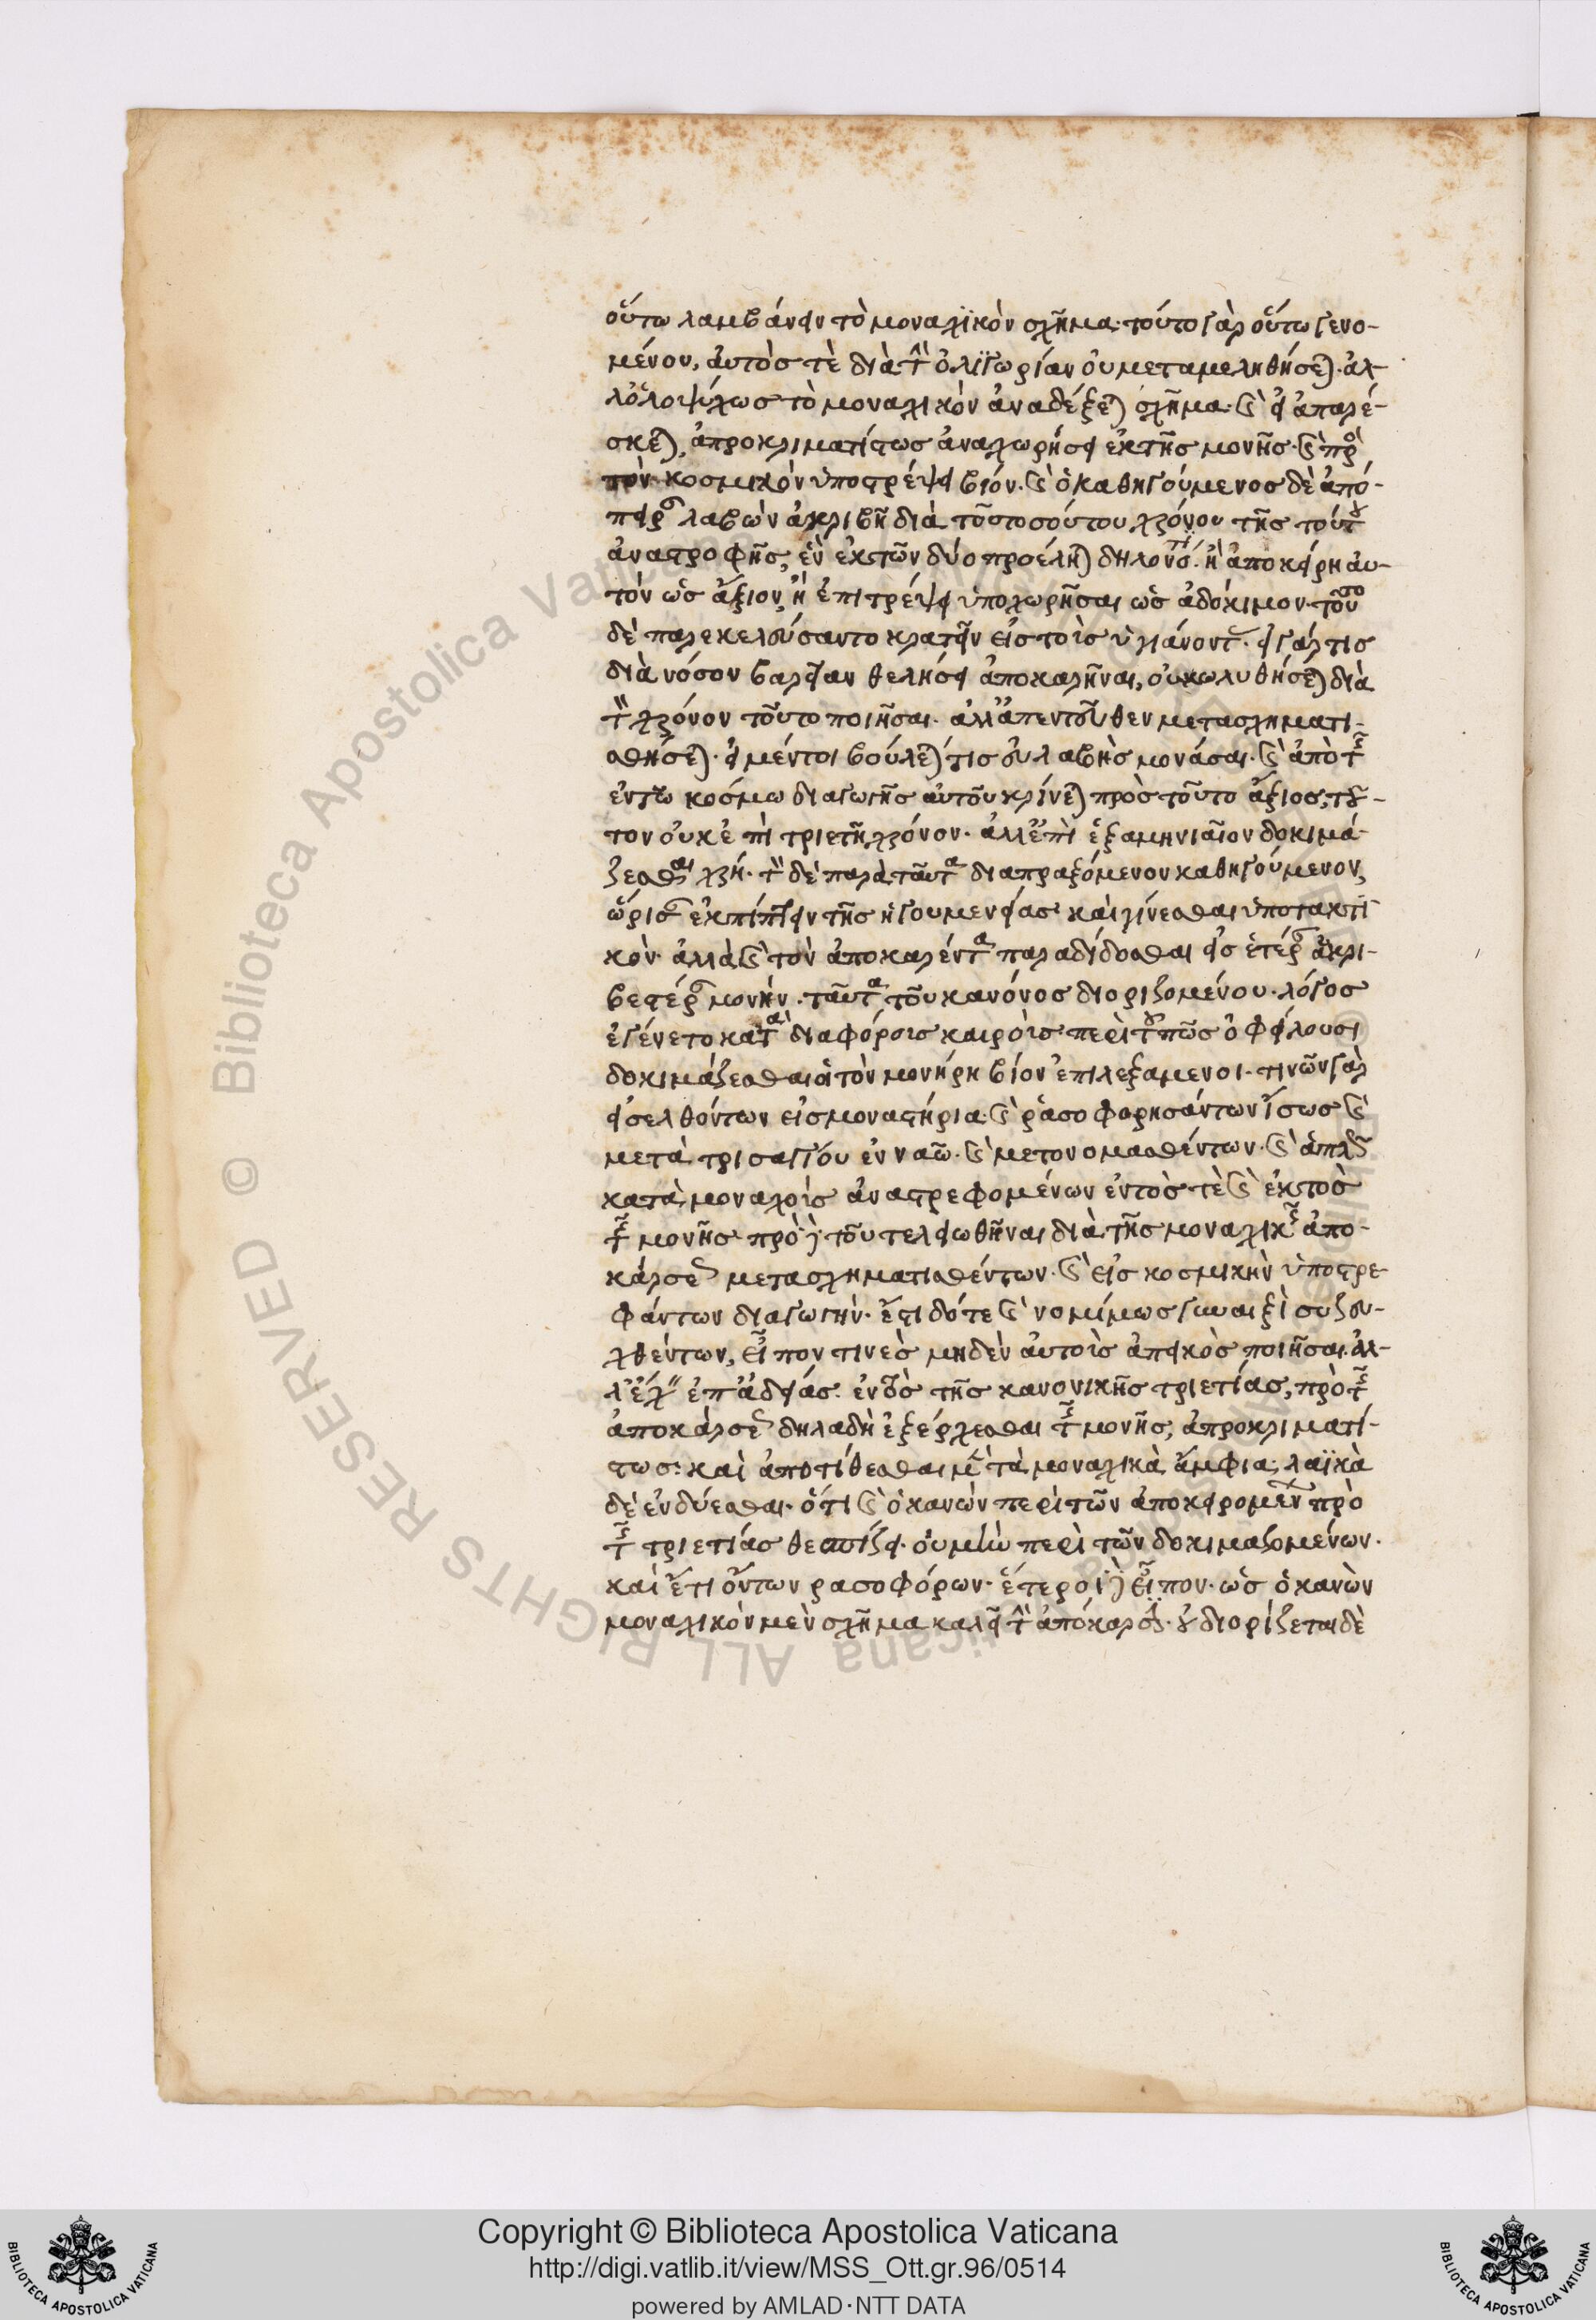 οὕτω λαμβάνειν τὸ μοναχικὸν σχῆμα· τούτο γὰρ οὕτω γενο-
μένου, ἀυτὸσ τὲ διὰ τὴν ὀλιγωρίαν ὀυ μεταμεληθήσεται· ἀλ-
λ' ὁλοψύχωσ τὸ μοναχικὸν ἀναδέξεται σχῆμα· καὶ εἰ ἀπαρέ-
σκεται, ἀπροκριματίστωσ ἀναχωρήσει ἐκ τῆσ μονῆσ· καὶ πρὸσ
τὸν κοσμικὸν ὑποστρέψει βίον· καὶ ὁ καθηγούμενοσ δὲ ἀπό-
πειραν λαβὼν ἀκριβῆ διὰ τοῦ τοσούτου χρόνου τῆσ τούτου
ἀναστροφῆσ, ἓν ἐκ τῶν δύο προέληται δηλονότι· ἢ ἀποκείρη ἀυ-
τὸν ὡσ ἄξιον, ἢ ἐπιτρέψει ὑποχωρῆσαι ὡσ ἀδόκιμον· τοῦτο
δὲ παρεκελεύσαντο κρατεῖν εἰσ τοὺσ ὑγιαίνοντασ· εἰ γάρ τισ
διὰ νόσον βαρεῖαν θελήσει ἀποκαρῆναι, οὐ κωλυθήσεται διὰ
τὸν χρόνον τοῦτο ποιῆσαι· ἀλλ' ἀπεντεῦθεν μετασχηματι-
σθήσεται· εἰ μέντοι βούλεταί τισ ἐυλαβὴσ μονάσαι· καὶ ἀπὸ τῆσ
ἐν τῶ κοσμω διαγωγῆσ ἀυτοῦ κρίνεται πρὸσ τοῦτο ἄξιοσ, τοῦ-
τον οὐκ ἐπὶ τριετῆ χρόνον· ἀλλ' ἐπὶ ἑξαμηνιαῖον δοκιμά-
ζεσθαι χρή· τὸν δὲ παρὰ ταῦτα διαπραξόμενον καθηγούμενον,
ὥρισαν ἐκπίπτειν τῆσ ἡγουμενείασ καὶ γίνεσθαι ὑποτακτι-
κόν· ἀλλὰ καὶ τὸν ἀποκαρέντα παραδίδοσθαι εἰσ ἑτέραν ἀκρι-
βεστέραν μονήν· ταῦτα τοῦ κανόνοσ διοριζομένου· λόγοσ
ἐγένετο κατὰ διαφόρουσ καιροὺσ περὶ τοῦ πῶσ ὀφείλουσι
δοκιμάζεσθαι οἱ τὸν μονήρη βίον ἐπιλεξάμενοι· τινῶν γὰρ
εἰσελθόντων εἰσ μοναστήρια· καὶ ῥασοφορησάντων ἴσωσ καὶ
μετὰ τρισαγίου ἐν ναῶ· καὶ μετονομασθέντων· καὶ ἁπλῶσ
κατὰ μοναχοὺσ ἀναστρεφομένων ἐντόσ τὲ καὶ ἐκτὸσ
τῆσ μονῆσ πρὸ δὲ τοῦ τελειωθῆναι διὰ τῆσ μοναχικῆσ ἀπο-
κάρσεωσ μετασχηματισθέντων· καὶ εἰσ κοσμικὴν ὑποστρε-
ψάντων διαγωγήν· ἔστι δότε καὶ νομίμωσ γυναιξὶ συζευ-
χθέντων, εἶπόν τινεσ μηδὲν ἀυτοὺσ ἀπεικὸσ ποιῆσαι· ἀλ-
λ' ἔχειν ἐπ' ἀδείασ ἐντὸσ τῆσ κανονικῆσ τριετίασ, πρὸ τῆσ
ἀποκάρσεωσ δηλαδὴ ἐξέρχεσθαι τῆσ μονῆσ, ἀπροκριματί-
στωσ· καὶ ἀποτίθεσθαι μὲν τὰ μοναχικὰ ἄμφια, λαϊκὰ
δὲ ἐνδύεσθαι· ὅτι καὶ ὁ κανὼν περὶ τῶν ἀποκειρομένων πρὸ
τῆσ τριετίασ θεσπίζει· ὀυ μὴν περὶ τῶν δοκιμαζομένων·
καὶ ἔτι ὄντων ρασοφόρων· ἕτεροι δὲ εἶπον· ὡσ ὁ κανὼν
μοναχικὸν μὲν σχῆμα καλεῖ τὴν ἀπόκαρσιν· οὐ διορίζεται δὲ